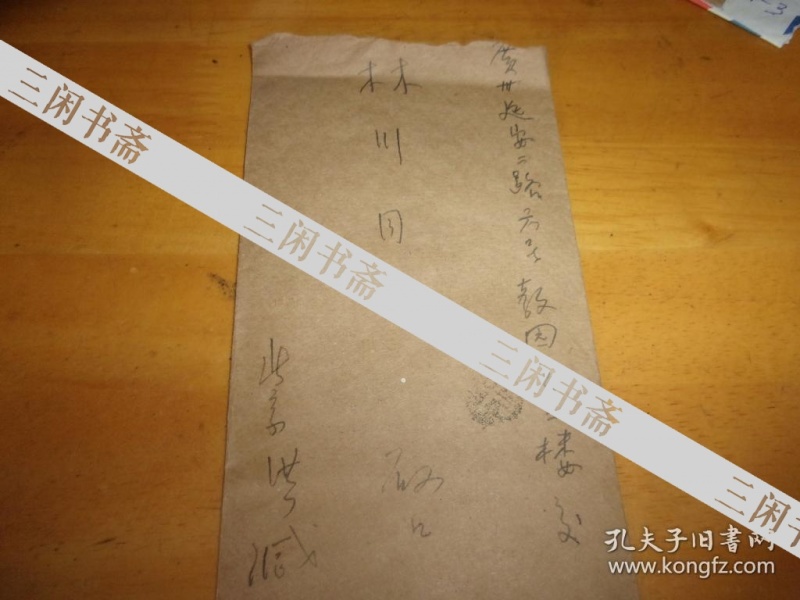 廣州延安二路六号敎园
楼交
林川同
啟
北京洪缄
三闲书斋
三闲书斋
三闲书斋
三闲书斋
孔夫子旧書网
www.kongfz.com